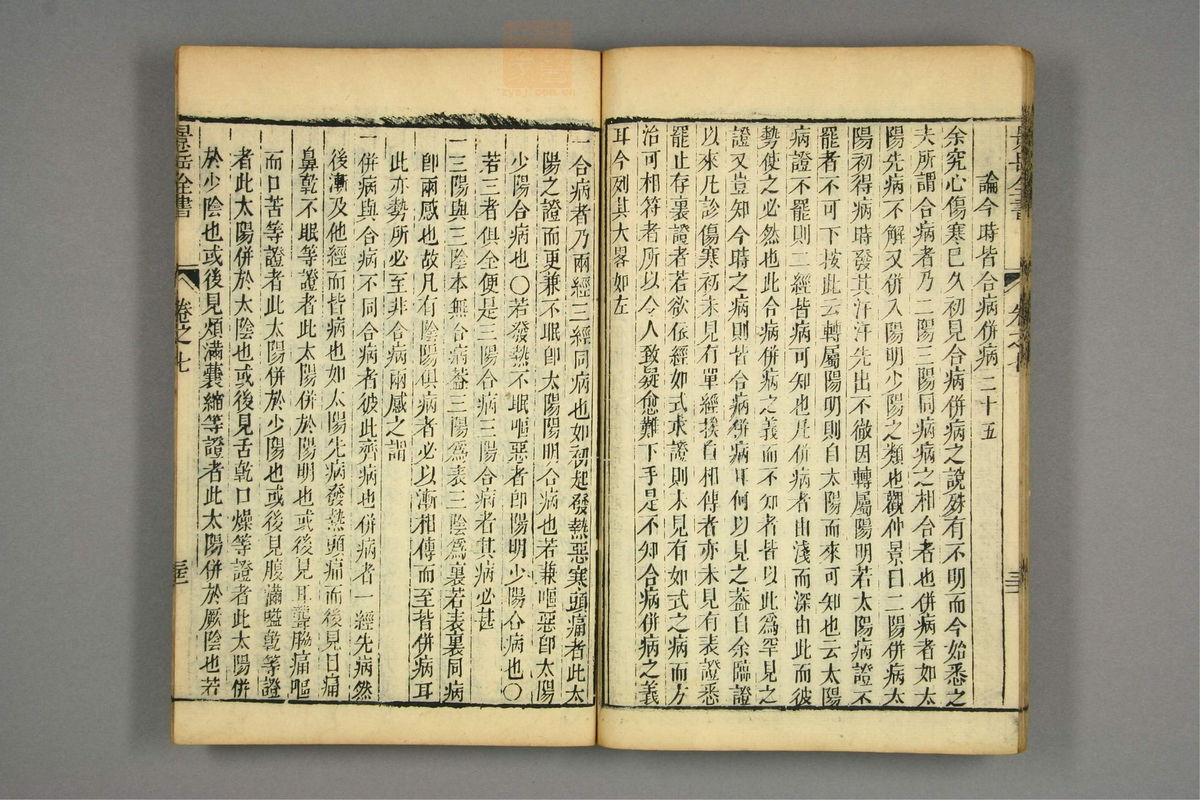 論今時皆合病併病 二十五
余究心傷寒已久初見合病併病之說殊有不明而今始悉之
夫所謂合病者乃二陽三陽同病病之相合者也併病者如太
陽先病不解又併入陽明少陽之類也觀仲景曰二陽併病太
陽初得病時發其汗汗先出不徹因轉屬陽明若太陽病證不
罷者不可下按此云轉屬陽明則自太陽而來可知也云太陽
病證不罷則二經皆病可知也凡併病者由淺而深由此而彼
勢使之必然也此合病併病之義而不知者皆以此為罕見之
證又豈知今時之病則皆合病併病耳何以見之蓋自余臨證
以來凡診傷寒初未見有單經挨自相傳者亦未見有表證悉
罷止存裏證者若欲依經如式求證則未見有如式之病而方
治可相符者所以令人致疑愈難下手是不知合病併病之義
耳今列其大畧如左
一合病者乃兩經三經同病也如初起發熱惡寒頭痛者此太
陽之證而更兼不眠即太陽陽明合病也若兼嘔惡即太陽
少陽合病也〇若發熱不眠嘔惡者即陽明少陽合病也〇
若三者俱全便是三陽合病三陽合病者其病必甚
一三陽與三陰本無合病葢三陽為表三陰為裏若表裏同病
即兩感也故凡有陰陽俱病者必以漸相傳而至皆併病耳
此亦勢所必至非合病兩感之謂
一併病與合病不同合病者彼此齊病也併病者一經先病然
後漸及他經而皆病也如太陽先病發熱頭痛而後見目痛
鼻乾不眠等證者此太陽併於陽明也或後見耳聾脇痛嘔
而口苦等證者此太陽併於少陽也或後見腹滿嗌乾等證
者此太陽併於太陰也或後見舌乾口燥等證者此太陽併
於少陰也或後見煩滿囊縮等證者此太陽併於厥陰也若
景岳全書
卷之七